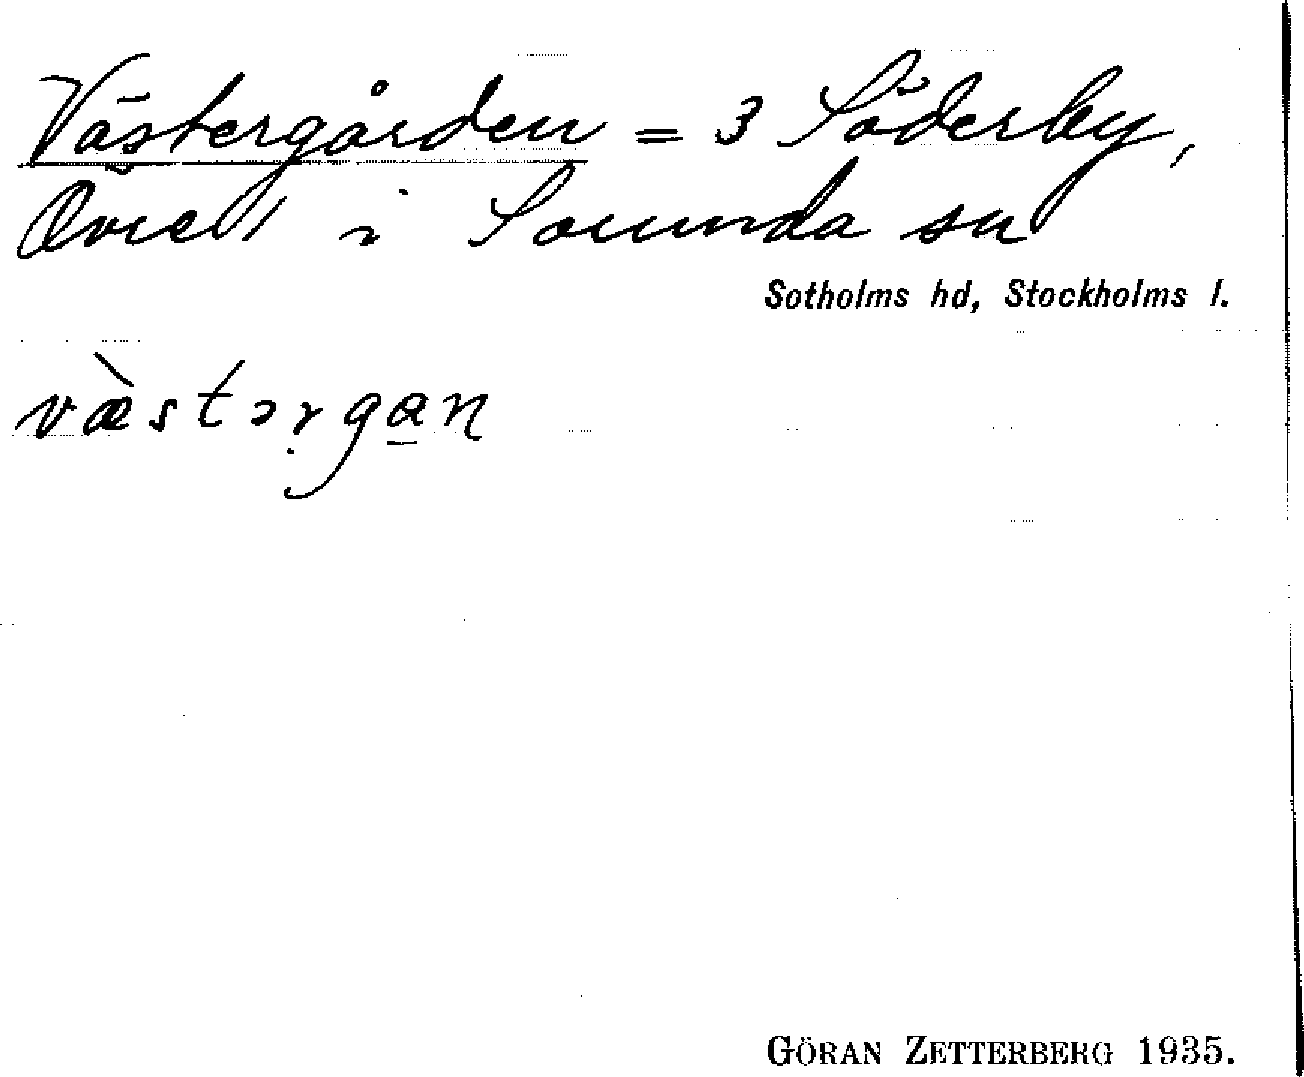 Västergården = 3 Söderby,
Övre i Sorunda sn
Sotholms hd, Stockholms l.
vàstərgan
GÖRAN ZETTERBERG 1935.